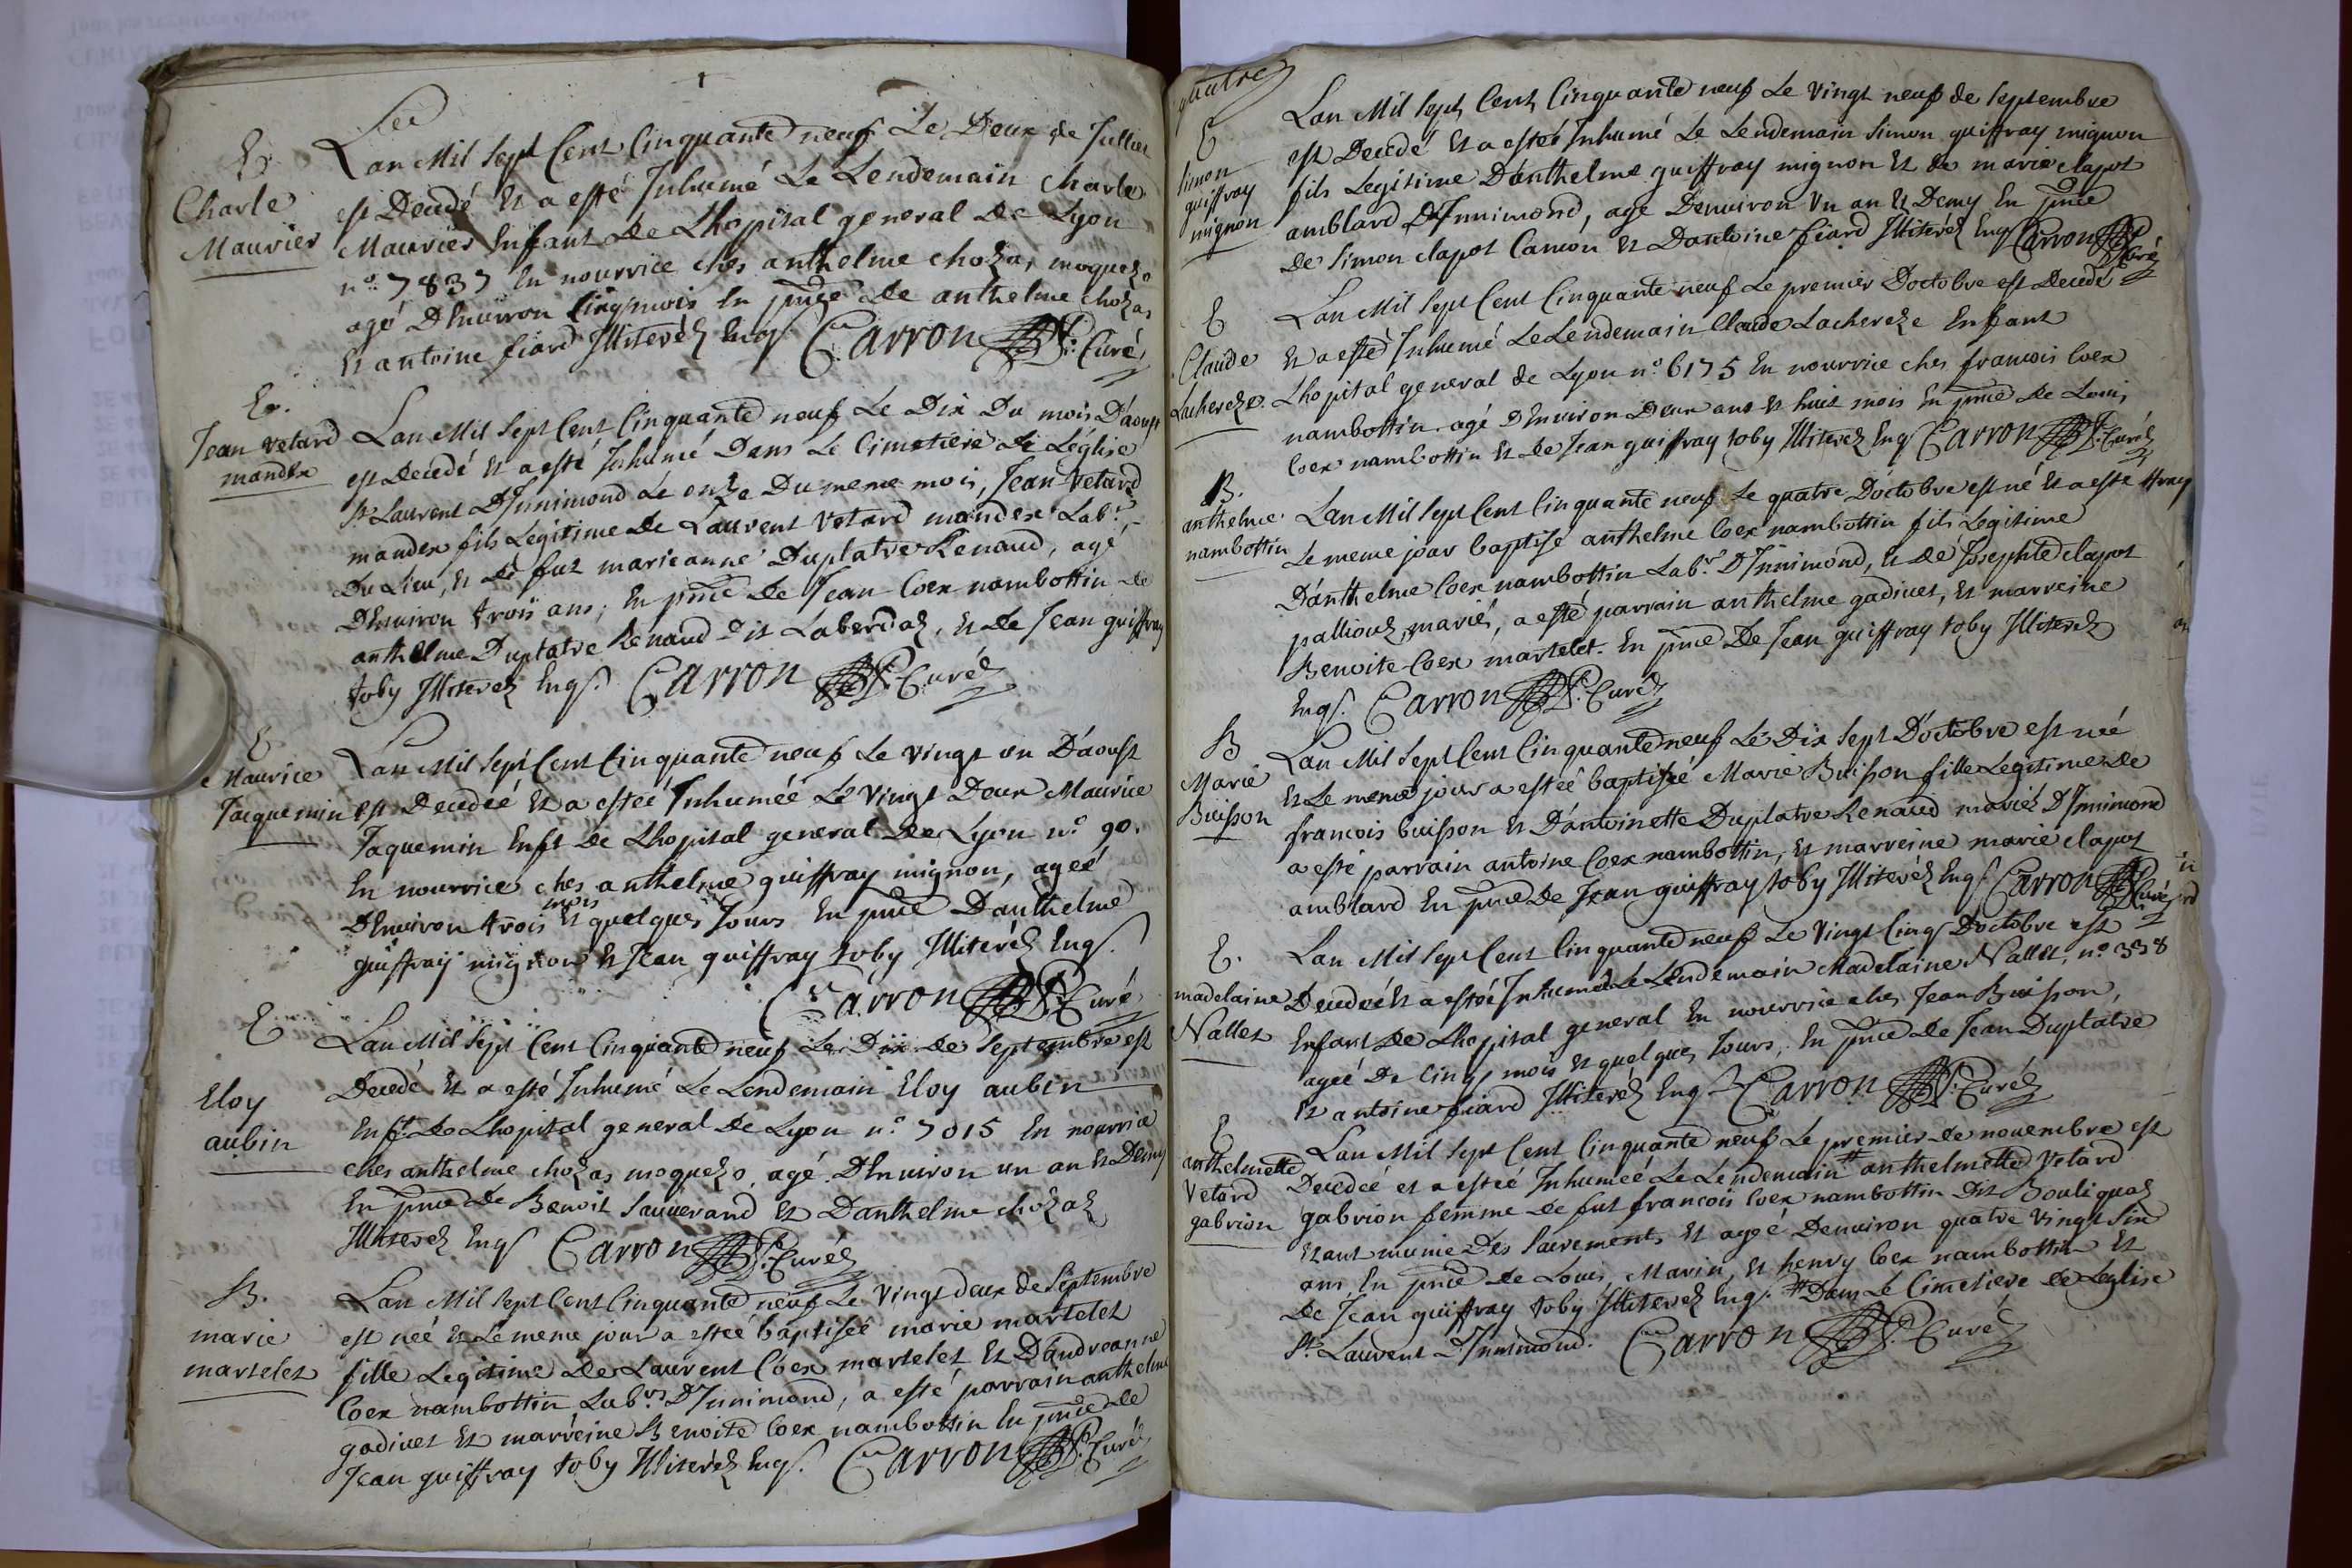 E.
Charle
Maurier
Lan Mil Sept Cent Cinquante neuf Le Deux de Juillet
est Decedé Et a esté Inhumé Le Lendemain Charle
Maurier Enfant de Lhopital general De Lyon
n.º 7837 En nourrice ches anthelme chozas moquezo
agé DEnuiron Cinq mois En pnce de anthelme chozas
Et antoine fiard Illiteréz Enqs. Carron Curé
E.
Jean Vetard
mandex
Lan Mil Sept Cent Cinquante neuf Le Dix Du mois D'aoust
est Decedé Et a esté Inhumé Dans Le Cimetiere de Léglise
St Laurent DInnimond Le onze Du meme mois, Jean Vetard
mandex fils Legitime De Laurent Vetard mandex Labr.
Du Lieu, Et de fut marieanne Duplatre Renaud, agé
DEnuiron trois ans, En pnce De Jean Coex nambottin de
anthelme Duplatre Renaud Dit Laberdaz, Et de Jean guiffray
toby Illiteréz Enqs. Carron Curé
E
Maurice
Jaquemin
Lan Mil Sept Cent Cinquante neuf Le vingt un D'aoust
est Decedeé Et a esteé Inhumeé Le Vingt Deux Maurice
Jaquemin Enft De Lhopital general De Lyon n.º 90.
En nourrice ches anthelme guiffray mignon, ageé
DEnuiron trois mois Et quelques Jours En pnce D'anthelme
guiffray mignon Et Jean guiffray toby Illiteréz Enqs.
Carron Curé
E
Eloy
aubin
Lan Mil Sept Cent Cinquante neuf Le Dix de Septembre est
Decedé Et a esté Inhumé Le Lendemain Eloy aubin
Enft. De Lhopital general De Lyon n.º 7015 En nourrice
ches anthelme chozas moquezo, agé DEnuiron un an Et Demy
En pnce de Benoit Sauuerand Et Danthelme chozaz
Illiteréz Enqs Carron Curé
B.
marie
martelet
Lan Mil Sept Cent Cinquante neuf Le Vingt deux de Septembre
est neé Et Le meme jour a esteé baptiseé marie martelet
fille Legitime De Laurent Coex martelet Et D'andreanne
Coex nambottin Labrs. DInnimond, a esté parrain anthelme
gadiuet Et marreine Benoite Coex nambottin En pnce de
Jean guiffray toby Illiteréz Enqs. Carron Curé
quatre
E
Simon
guiffray
mignon
Lan Mil Sept Cent Cinquante neuf Le Vingt neuf de Septembre
est Decedé Et a esté Inhumé Le Lendemain Simon guiffray mignon
fils Legitime D'anthelme guiffray mignon Et de marie clapot
amblard DInnimond, agé Denuiron Vn an Et Demy En pnce
De Simon clapot Camon Et Dantoine fiard Illiteréz Enqs Carron Curé
E
Claude
Lachereze.
Lan Mil Sept Cent Cinquante neuf Le premier Doctobre est Decedé
Et a esté Inhumé Le Lendemain Claude Lachereze Enfant
Lhopital general de Lyon n.º 6175 En nourrice ches francois Coex
nambottin. agé DEnuiron Deux ans Et huit mois En pnce De Louis
Coex nambottin Et de Jean guiffray toby Illiteréz Enqs Carron Curé
B.
anthelme
nambottin
Lan Mil Sept Cent Cinquante neuf Le quatre Doctobre est né Et a esté
Le meme jour baptisé anthelme Coex nambottin fils Legitime
D'anthelme Coex nambottin Labr. DInnimond, Et de Josephte clapot
pallioux mariés, a esté parrain anthelme gadiuet, Et marreine
Benoite Coex martelet. En pnce De Jean guiffray toby Illiteréz
Enqs. Carron Curé
B
Marie
Buisson
Lan Mil Sept Cent Cinquante neuf Le Dix Sept D'octobre est neé
Et Le meme jour a esteé baptiseé Marie Buisson fille Legitime de
francois buisson Et D'antoinette Duplatre Renaud mariéz DInnimond
a esté parrain antoine Coex nambottin, Et marreine marie clapot
amblard En pnce De Jean guiffray toby Illiteréz Enqs Carron Curé
E.
madelaine
Nallet
Lan Mil Sept Cent Cinquante neuf Le Vingt Cinq Doctobre est
Decedeé Et a esteé Inhumeé Le Lendemain Madelaine Nallet, n.º 338
Enfant De Lhopital general En nourrice ches Jean Buisson,
ageé De Cinq mois Et quelques Jours, En pnce De Jean Duplatre
Et antoine fiard Illiteréz Enqs Carron Curé
E
anthelmette
Vetard
gabrion
Lan Mil Sept Cent Cinquante neuf Le premier de nouembre est
Decedeé et a esteé Inhumeé Le Lendemain # anthelmette Vetard
gabrion femme de fut francois Coex nambottin Dit Bouliquaz
Etant munie Des Sacrements Et ageé Denuiron quatre Vingt Six
ans En pnce de Louis, Marin, Et henry Coex nambottin Et
De Jean guiffray toby Illiteréz Enqs. # Dans Le Cimetiere de Leglise
St. Laurent DInnimond. Carron Curé